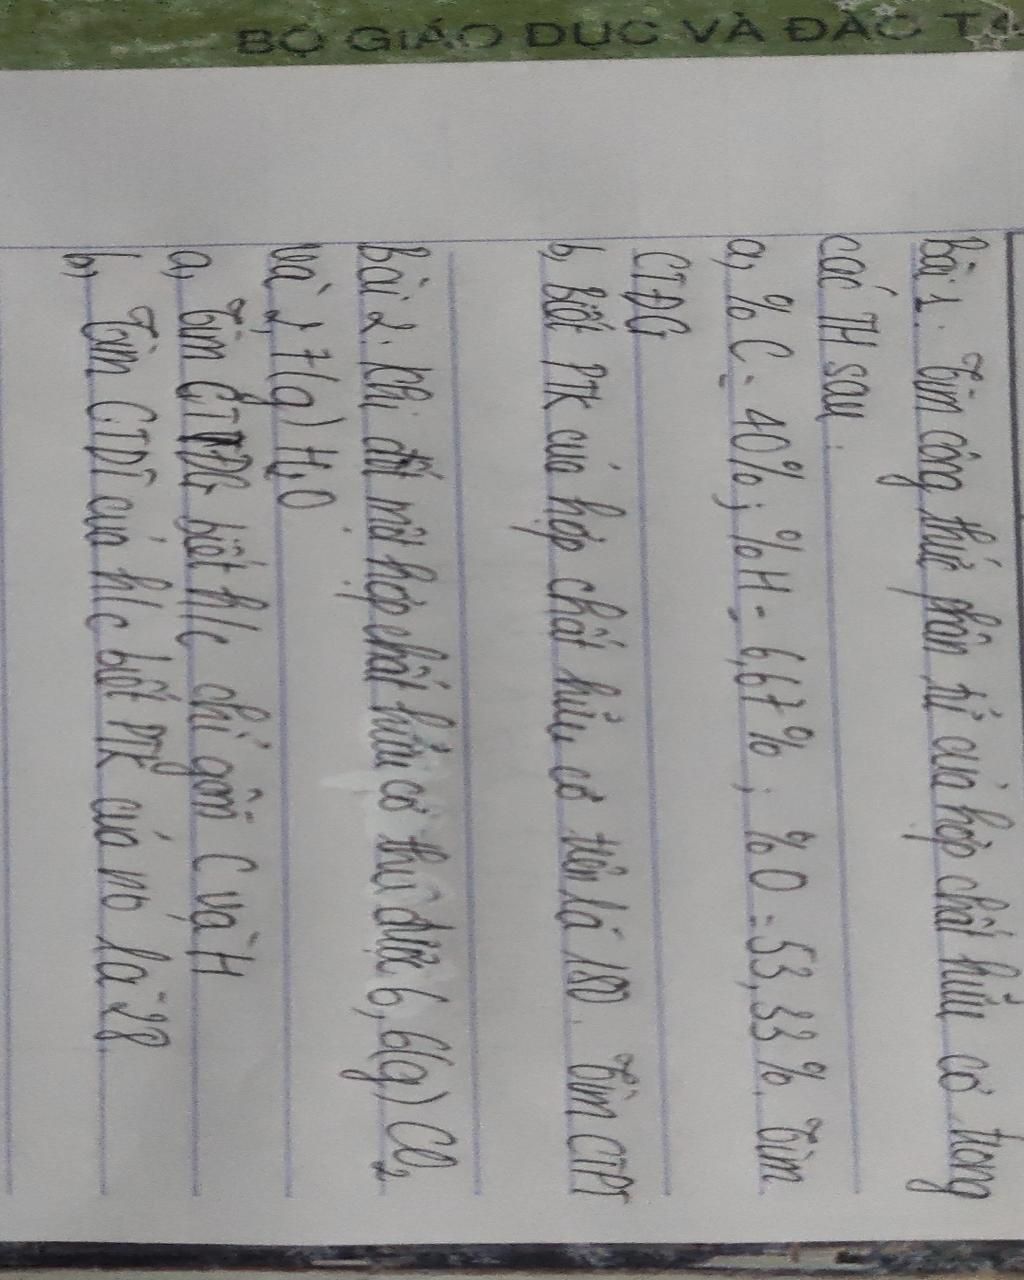 BỘ GIÁO DỤC VÀ ĐÀO T
Bài 1. Tìm công thức phân tử của hợp chất hữu cơ trong
các TH sau.
a, %C = 40%; %H = 6,67%; %O = 53,33%. Tìm
CTĐG
b, Biết PTK của hợp chất hữu cơ trên là 180. Tìm CTPT
Bài 2. Khi đốt một hợp chất hữu cơ thu được 6,6(g) CO2
và 2,7(g) H2O
a, Tìm CTĐG biết h/c chỉ gồm C và H
b, Tìm CTPT của h/c biết PTK của nó là 28.